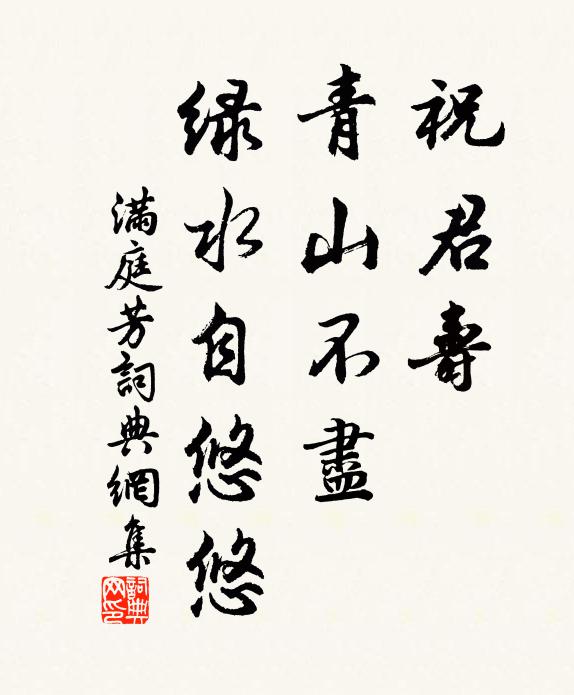 祝君壽
青山不盡
綠水自悠悠
滿庭芳詞典網集
詞典
网印